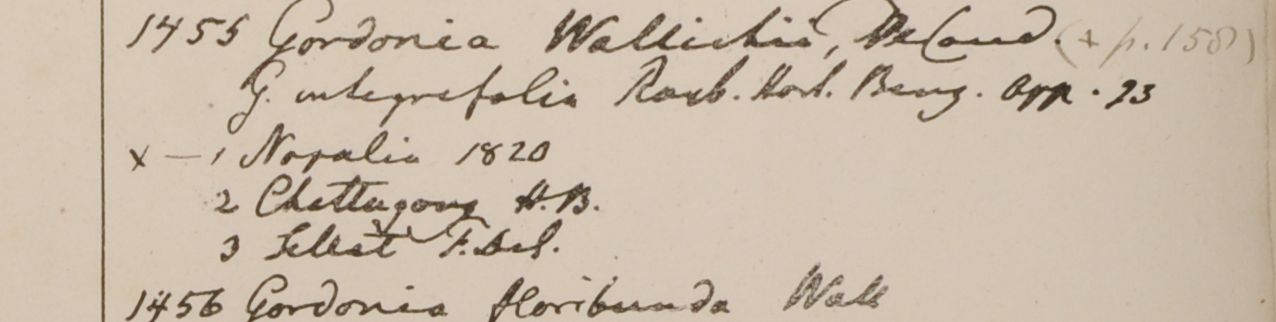 1455 Gordonia Wallichii, DeCand (x p. 158)
G. integrifolia Roxb. Hort. Beng. app. 93
x — 1 Napalia 1820
2 Chettagong H.B.
3 Sillet F. de S.
1456 Gordonia floribunda Wall